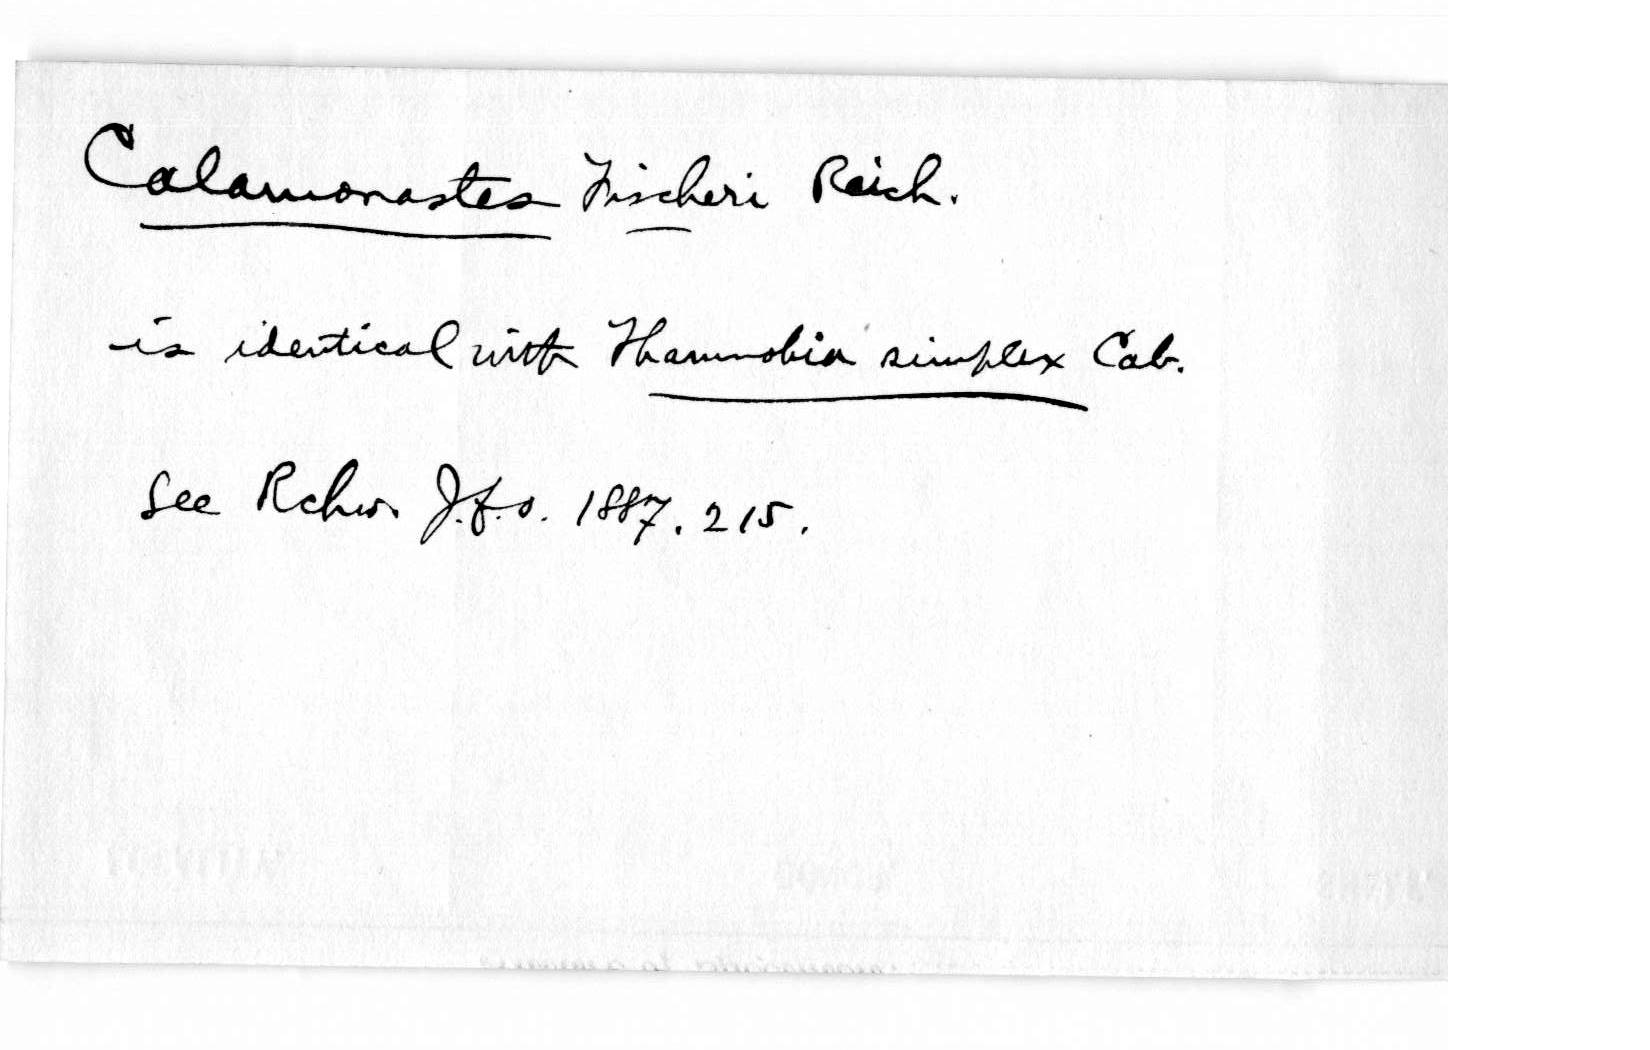 Calamonastes Fischeri Reich.
is identical with Thamnobia simplex Cab.
See Rchw. J.f.o. 1887. 215.